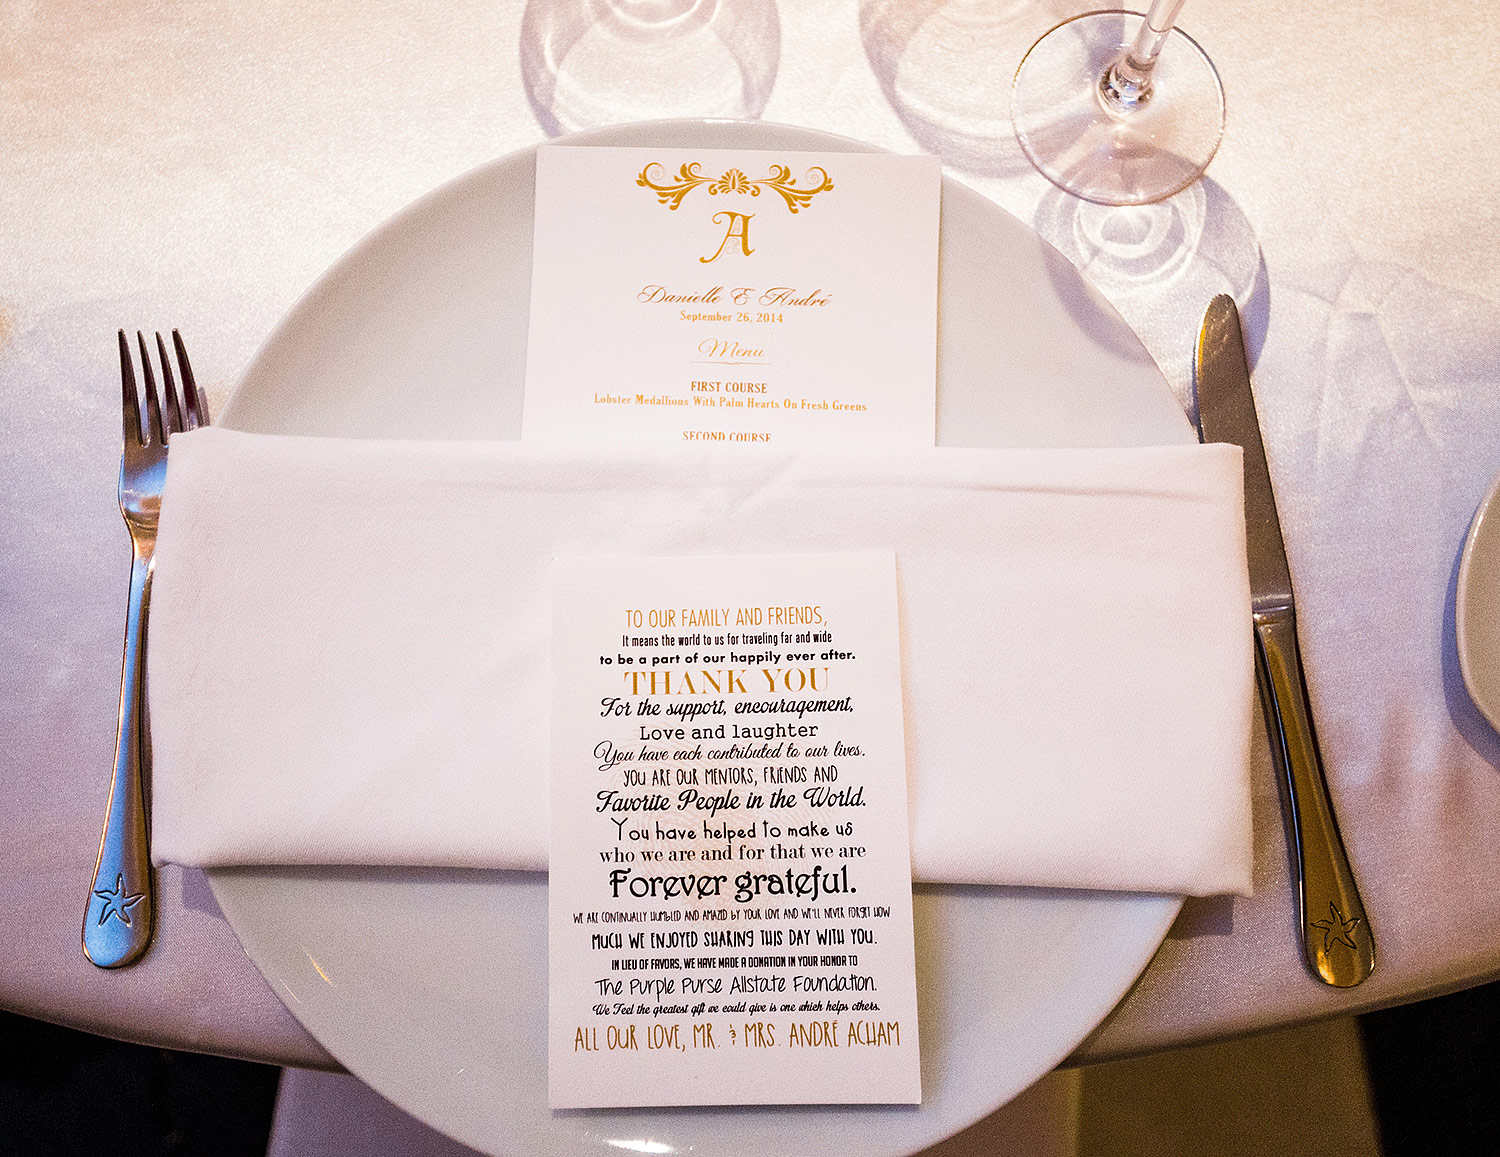 A
Danielle & André
September 26, 2014
Menu
FIRST COURSE
Lobster Medallions With Palm Hearts On Fresh Greens
SECOND COURSE
TO OUR FAMILY AND FRIENDS,
It means the world to us for traveling far and wide
to be a part of our happily ever after.
THANK YOU
For the support, encouragement,
Love and laughter
You have each contributed to our lives.
YOU ARE OUR MENTORS, FRIENDS AND
Favorite People in the World.
You have helped to make us
who we are and for that we are
Forever grateful.
WE ARE CONTINUALLY HUMBLED AND AMAZED BY YOUR LOVE AND WE'LL NEVER FORGET HOW
MUCH WE ENJOYED SHARING THIS DAY WITH YOU.
IN LIEU OF FAVORS, WE HAVE MADE A DONATION IN YOUR HONOR TO
The Purple Purse Allstate Foundation.
We Feel the greatest gift we could give is one which helps others.
ALL OUR LOVE, MR. & MRS. ANDRÉ ACHAM